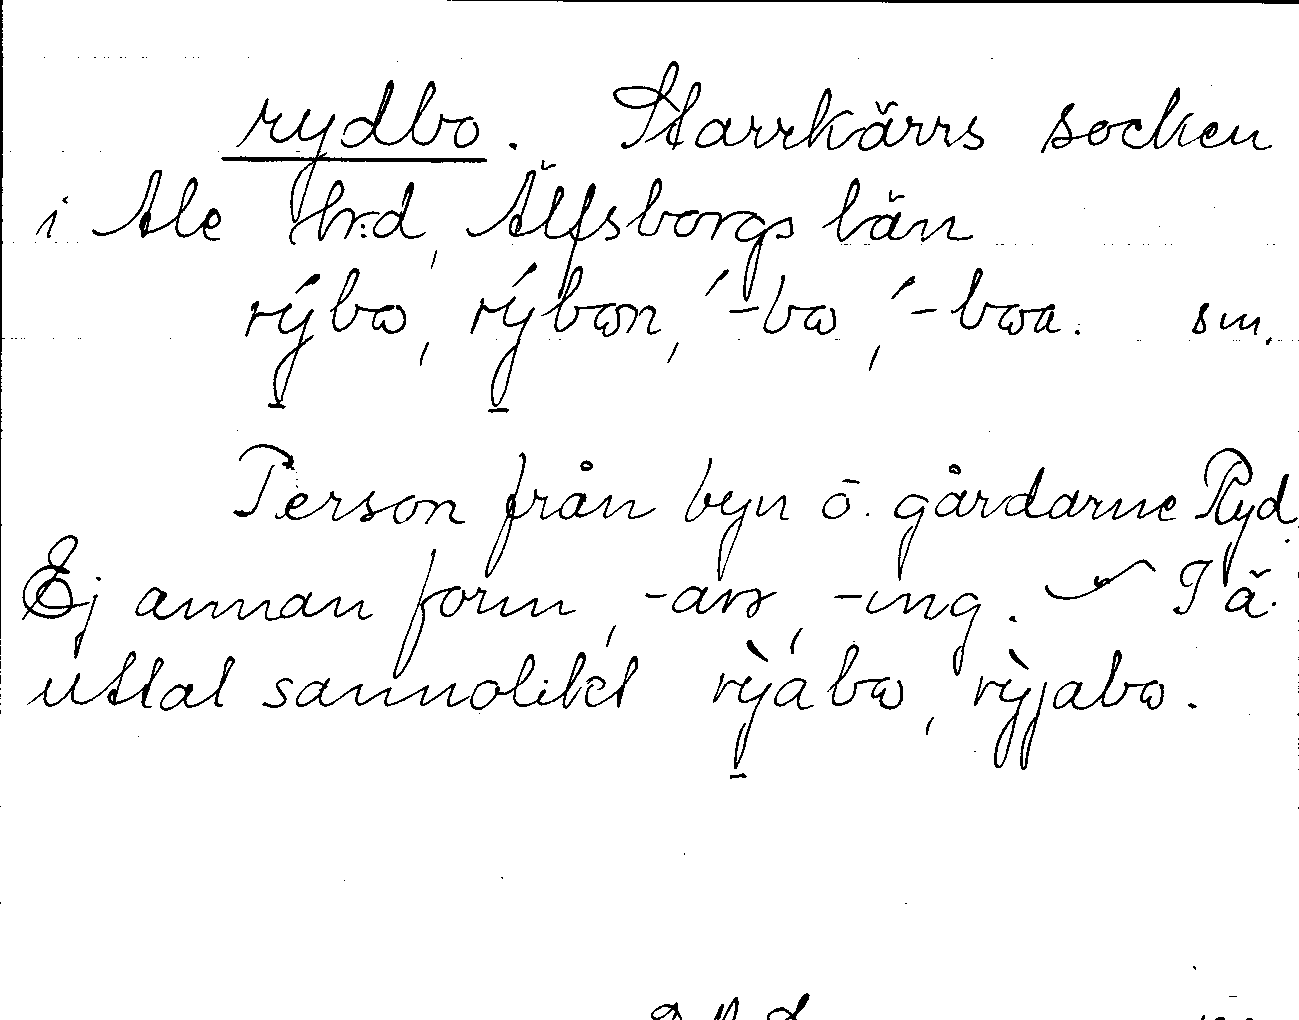 rydbo. Starrkärrs socken
i Ale hrd, Älfsborgs län
rýbω, rýbωn, ́-bω, ́-bωa. sm.
Person från byn ō. gårdarne Ryd.
Ej annan form, -arɤ, -ing. I ä.
uttal sannolikt rỳábω, rỳjabω.